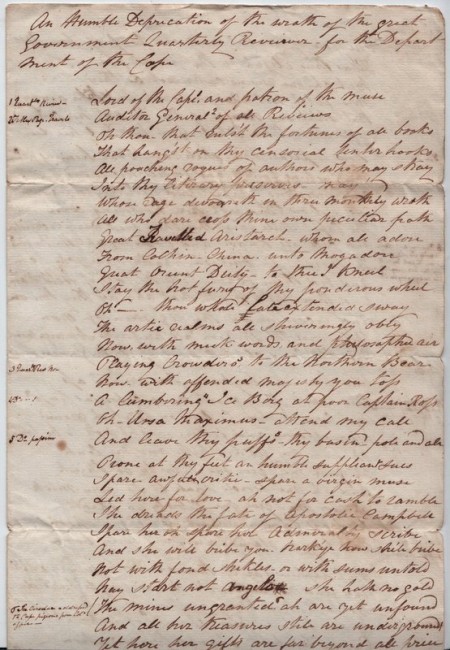 An Humble Deprication of the wrath of the great
Government Quarterly Reviewer for the Depart
ment of the Cape
Lord of the Cape and patron of the muse
Auditor General of all Reviews
Oh thou that rul'st the fortunes of all books
That hang'st on thy censorial tenter hooks
All poaching rogues of authors who may stray
Into thy literary preserves
Whose rage devoureth in three monthly wrath
All who dare cross thine own peculiar path
Great Travelled Aristarch whom all adore
From Cochin China unto Mogadore
Great Orient Deity to thee I kneel
Stay the hot fury of thy ponderous wheel
Oh thou whose late extended sway
The artic realms all shiveringly obey
Now with meek words and philosophic air
Playing Crowdero to the Northern Bear
Now with offended majesty you toss
A Cumbering Ice Berg at poor Captain Ross
Oh Ursa Maximus attend my call
And leave thy puffs thy basin pole and all
O one at thy feet an humble suppliant sues
Spare awful critic spare a virgin muse
Led here for love ah not for cash to ramble
She dreads the fate of apostolic Campbell
Spare her oh spare her Admiralty Scribe
And she will bribe you. Harkye how she'll bribe
Not with fond shekles or with sums untold
Nay start not she hath no gold
The mines ungranted ah are yet unfound
And all her treasures still are underground
Yet here her gifts are far beyond all price